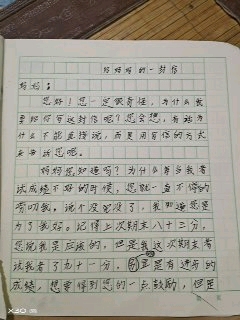 给妈妈的一封信
妈妈：
您好！您一定很奇怪，为什么我
要给你写这封信呢？您会想，有话为
什么不能直接说，而要用写信的方式
来告诉您呢。
妈妈您知道吗？为什么每当我考
试成绩不好的时候，您就一直不停的
唠叨我，说个没完没了，我知道您是
为了我好。记得上次期末八十三分，
您说我是应该的，但是我这次期末考
试我考了九十一分，是有进步的
成绩，想要得到您的一点鼓励，但是
X30 m